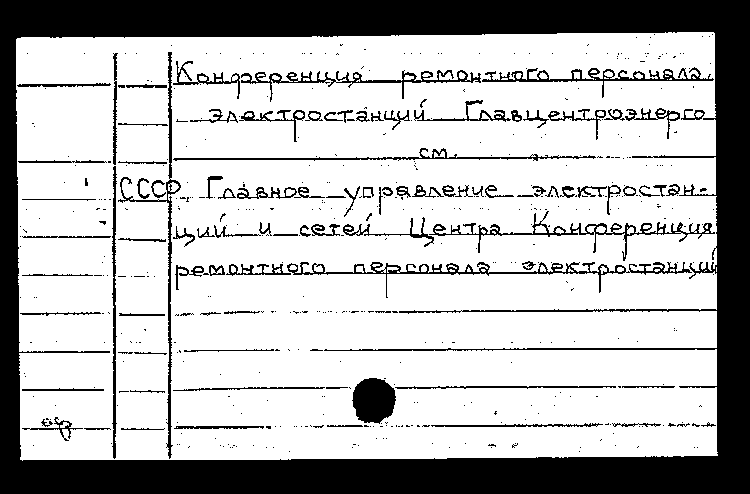 Конференция ремонтного персонала
электростанций Главцентроэнерго
см.
СССР. Главное управление электростан-
ций и сетей Центра Конференция
ремонтного персонала электростанций